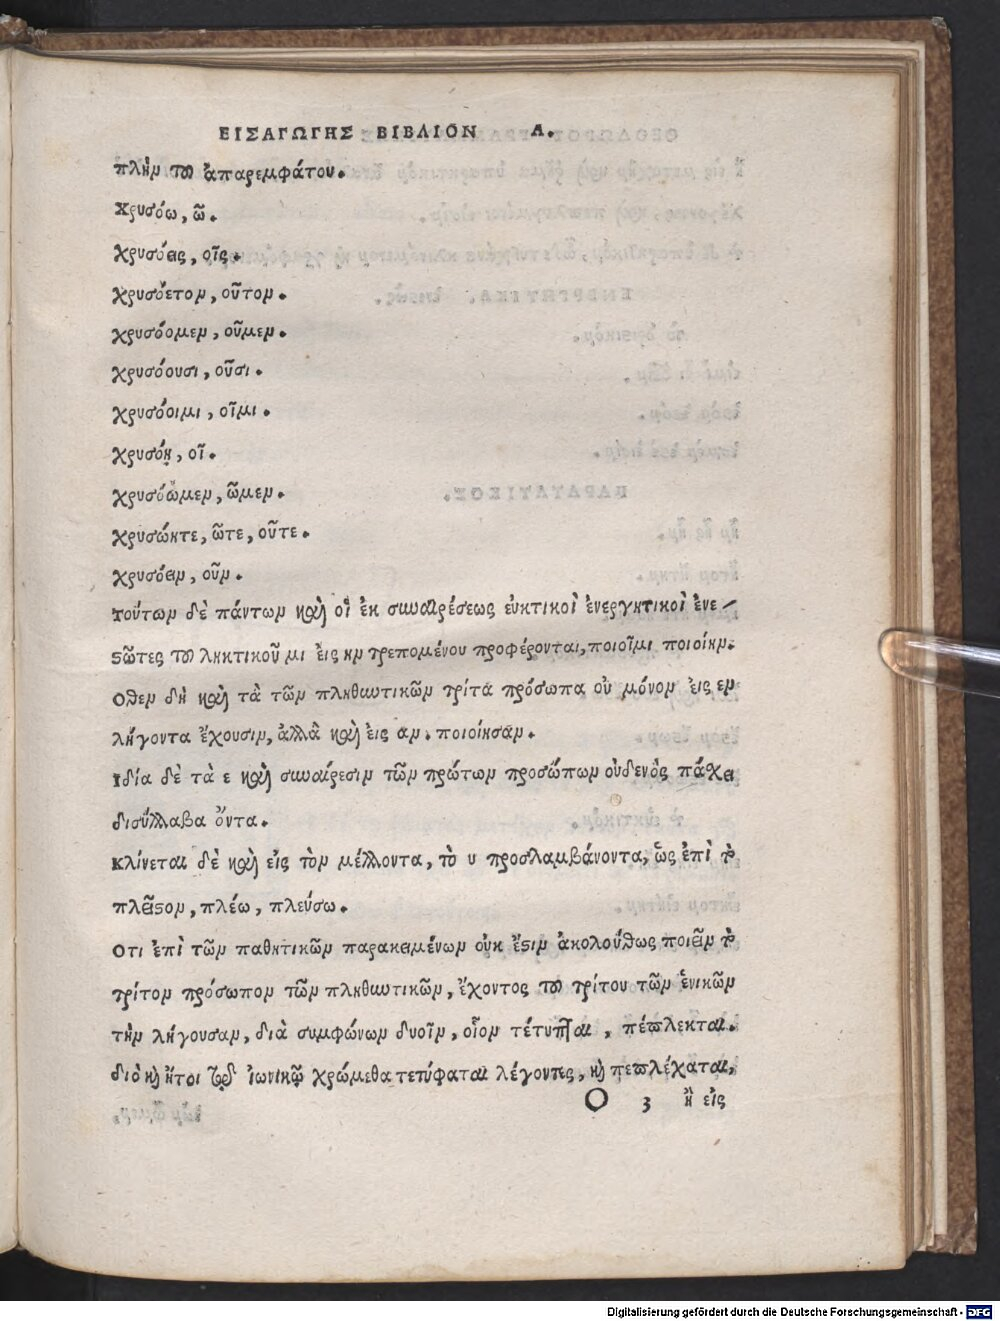 ΕΙΣΑΓΩΓΗΣ ΒΙΒΛΙΟΝ Α.
πλὴν τοῦ ἀπαρεμφάτου.
Χρυσόω, ῶ.
χρυσόεις, οῖς.
χρυσόετον, οῦτον.
χρυσόομεν, οῦμεν.
χρυσόουσι, οῦσι.
χρυσόοιμι, οῖμι.
χρυσόῃ, οῖ.
χρυσοώμεν, ῶμεν.
χρυσώητε, ῶτε, οῦτε.
χρυσόειν, οῦν.
τούτων δὲ πάντων καὶ οἱ ἐκ συναιρέσεως εὐκτικοὶ ἐνεργητικοὶ ἐνε-
στῶτες τοῦ ληκτικοῦ μι εἰς ην τρεπομένου προφέρονται, ποιοῖμι ποιοίην.
Οθεν δὴ καὶ τὰ τῶν πληθυντικῶν τρίτα πρόσωπα οὐ μόνον εἰς εν
λήγοντα ἔχουσιν, ἀλλὰ καὶ εἰς αν. ποιοίησαν.
Ιδία δὲ τὰ ε καὶ συναίρεσιν τῶν πρώτων προσώπων οὐδενὸς πάσχει
δισύλλαβα ὄντα.
Κλίνεται δὲ καὶ εἰς τὸν μέλλοντα, τὸ υ προσλαμβάνοντα, ὡς ἐπὶ τὸ
πλεῖστον, πλέω, πλεύσω.
Οτι ἐπὶ τῶν παθητικῶν παρακειμένων οὐκ ἔστιν ἀκολούθως ποιεῖν τὸ
τρίτον πρόσωπον τῶν πληθυντικῶν, ἔχοντος τοῦ τρίτου τῶν ἑνικῶν
τὴν λήγουσαν, διὰ συμφώνων δυοῖν, οἷον τέτυπται, πέπλεκται.
διὸ καὶ ἤτοι τῷ ἰωνικῷ χρώμεθα τετύφαται λέγοντες, καὶ πεπλέχαται,
Ο 3 ἢ εἰς
Digitalisierung gefördert durch die Deutsche Forschungsgemeinschaft - DFG